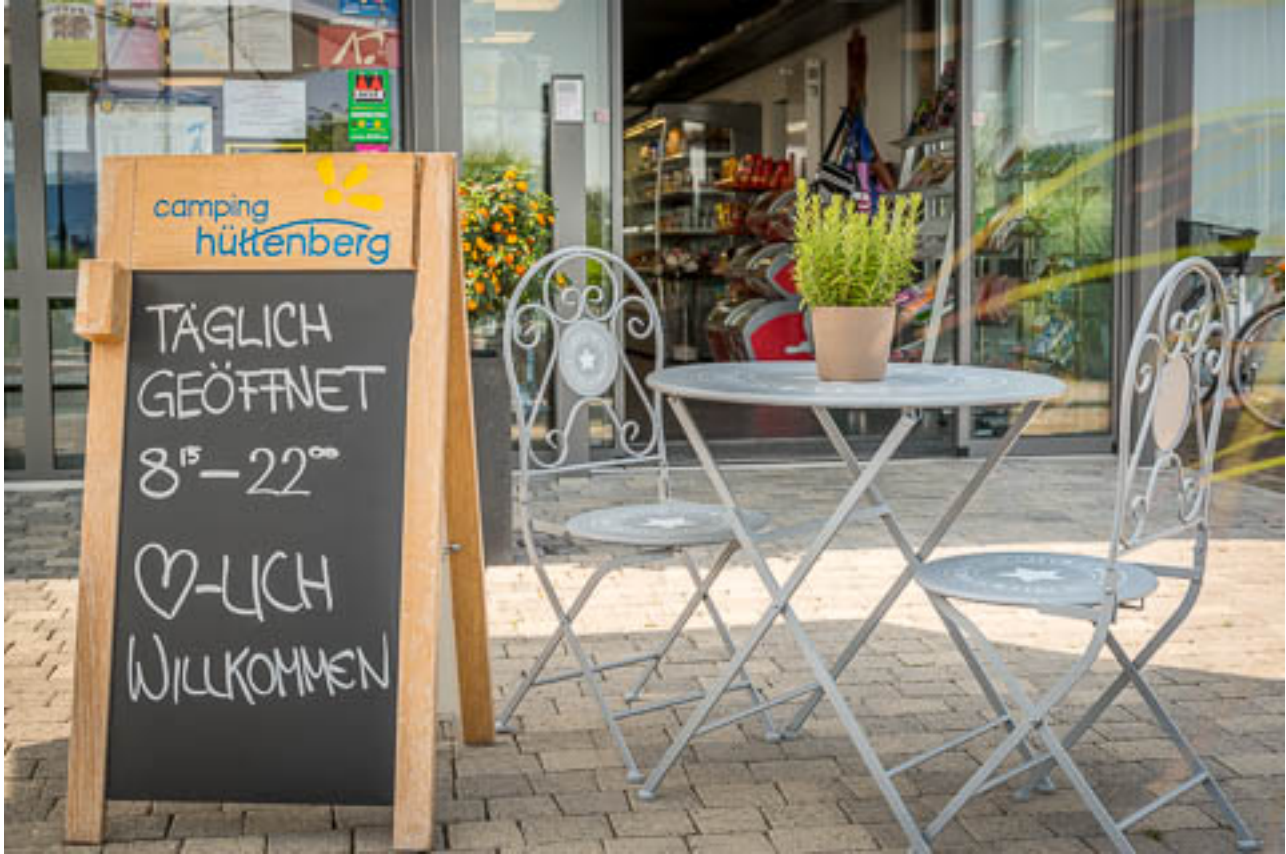 camping
hüttenberg
TÄGLICH
GEÖFFNET
8¹⁵–22⁰⁰
♡-LICH
WILLKOMMEN